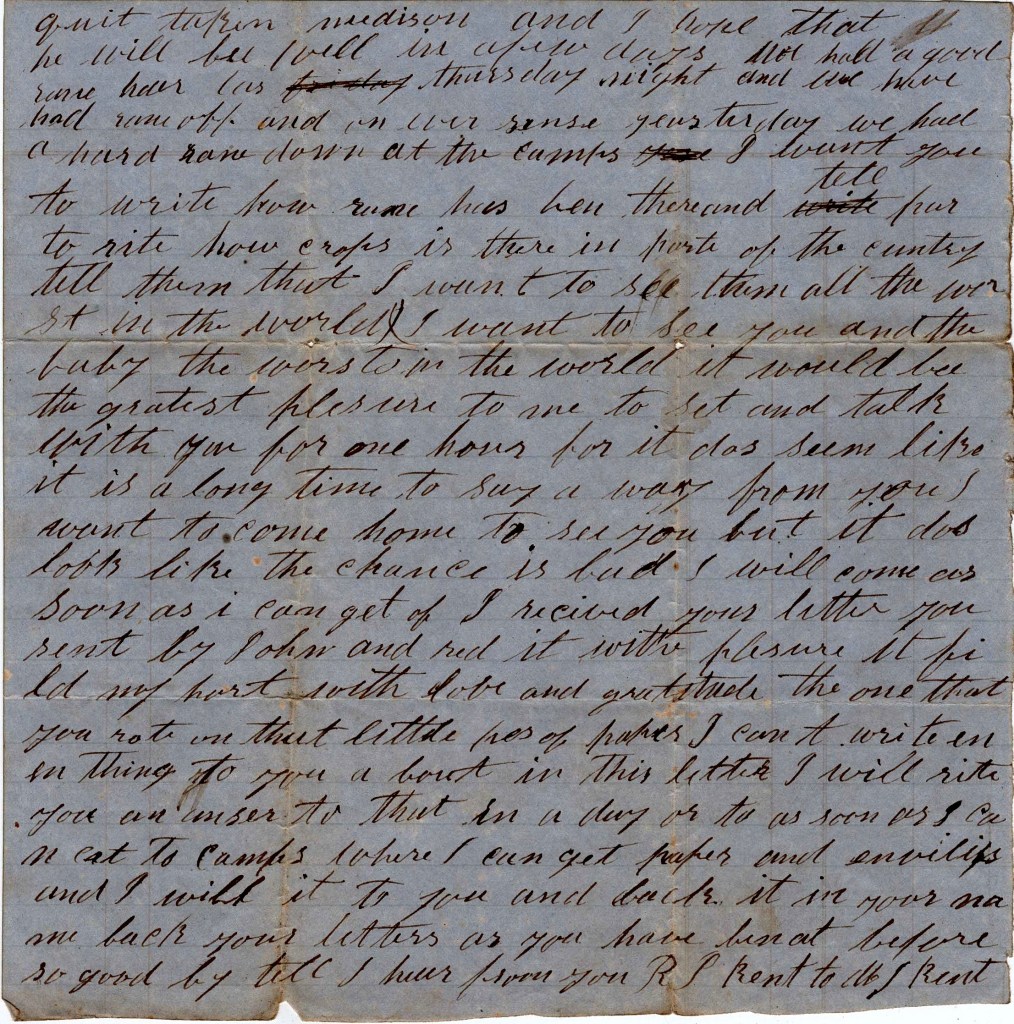 quit taken medison and I hope that
he will be well in a few days We had a good
rane hear las friday thursday night and we have
had rane off and on ever sense yeusterday we had
a hard rane down at the camps I want you
tell
to write how rane has ben there and write par
to rite how crops is there in parte of the cuntry
tell them that I want to see them all the wor
st in the world I want to see you and the
baby the worst in the world it would be
the gratest plesure to me to set and talk
with you for one hour for it dos seem like
it is a long time to say a way from you I
want to come home to see you but it dos
look like the chance is bad I will come as
soon as i can get of I recived your letter you
sent by John and red it with plesure it fi
ld my hart with love and gratitude the one that
you rote on that little pes of paper I cant write en
en thing to you a bout in this letter I will rite
you an anser to that in a day or to as soon as I ca
n cat to camps where I can get paper and envilips
and I will it to you and back it in your na
me back your letters as you have ben at before
so good by tell I hear from you R S Kent to M J Kent